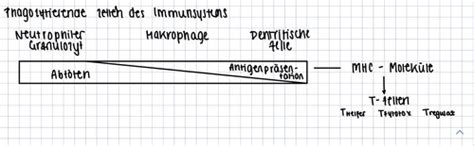 Phagozytierende Zellen des Immunsystems
Neutrophiler Makrophage Dendritische
Granulozyt Zelle
Abtöten Antigenpräsen-
tation
MHC - Moleküle
T-Zellen
THelfer TZytotox TRegulat